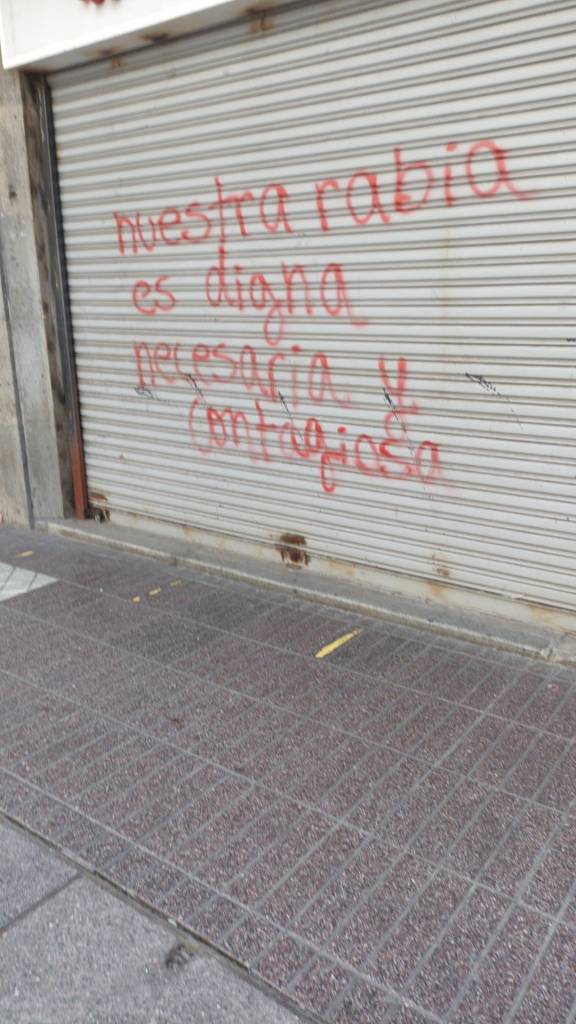 nuestra rabia
es digna
necesaria y
contagiosa